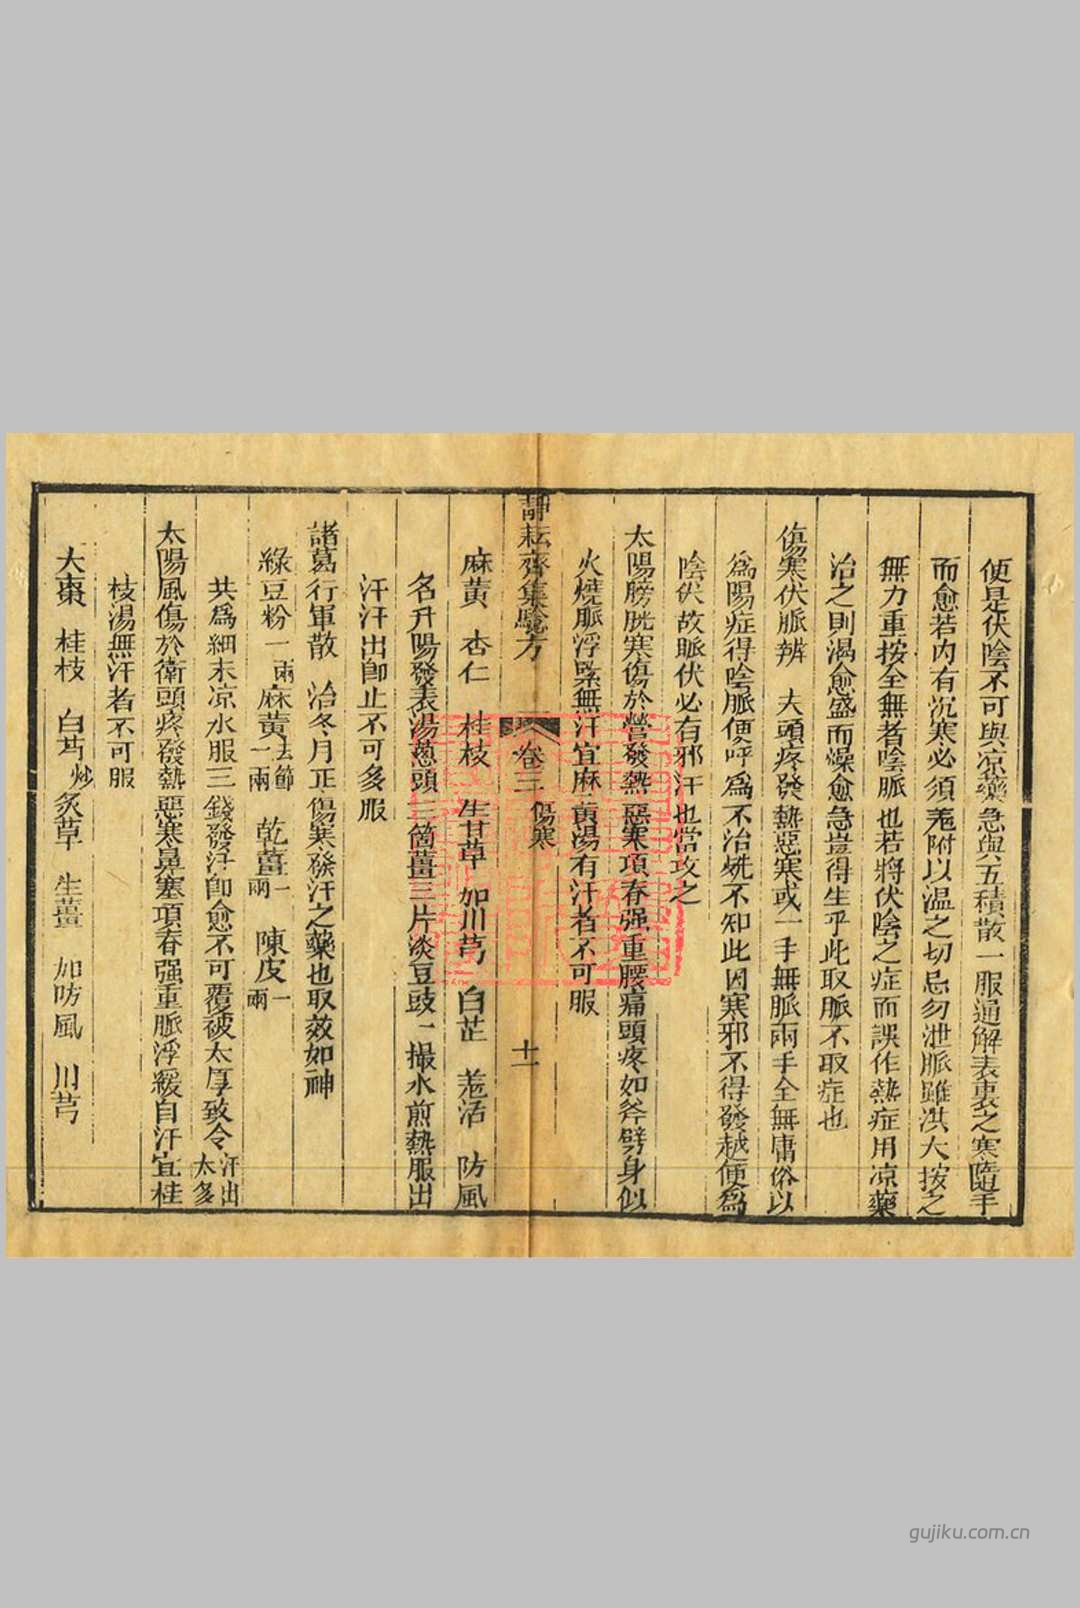 便是伏陰不可與凉藥急與五積散一服通解表裏之寒隨手
而愈若内有沉寒必須羗附以溫之切忌勿泄脈雖洪大按之
無力重按全無者陰脈也若將伏陰之症而誤作熱症用凉藥
治之則渴愈盛而燥愈急豈得生乎此取脈不取症也
傷寒伏脈辨 夫頭疼發熱惡寒或一手無脈兩手全無庸俗以
爲陽症得陰脈便呼爲不治殊不知此因寒邪不得發越便爲
陰伏故脈伏必有邪汗也當攻之
太陽膀胱寒傷於營發熱惡寒項脊强重腰痛頭疼如斧劈身似
火燒脈浮緊無汗宜麻黄湯有汗者不可服
靜耘齋集驗方 卷三 傷寒 十一
麻黄 杏仁 桂枝 生甘草 加川芎 白芷 羗活 防風
名升陽發表湯蔥頭三箇薑三片淡豆豉一撮水煎熱服出
汗汗出卽止不可多服
諸葛行軍散 治冬月正傷寒發汗之藥也取效如神
綠豆粉一兩 麻黄去節一兩 乾薑一兩 陳皮一兩
共爲細末凉水服三錢發汗卽愈不可覆被太厚致令汗出太多
太陽風傷於衛頭疼發熱惡寒鼻塞項脊强重脈浮緩自汗宜桂
枝湯無汗者不可服
大棗 桂枝 白芍炒 炙草 生薑 加防風 川芎
gujiku.com.cn